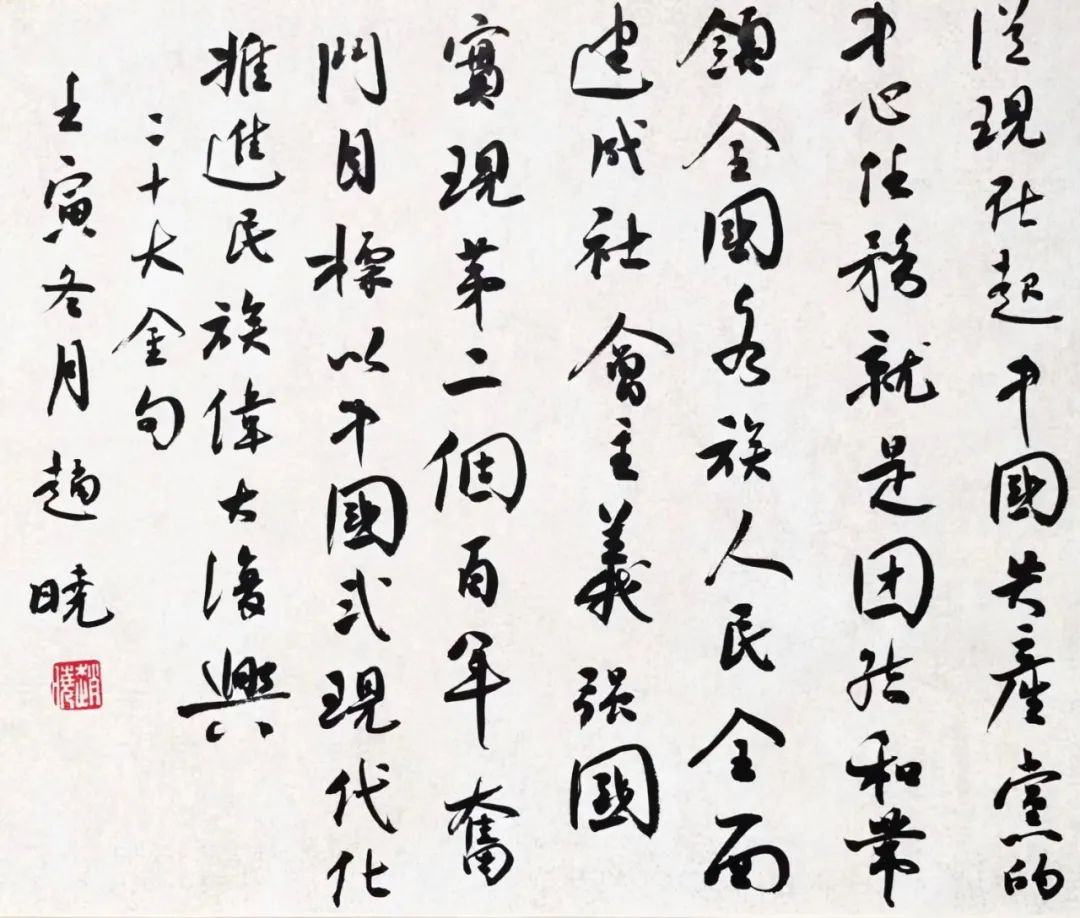 從現在起中國共產黨的
中心任務就是团結和帶
領全國各族人民全面
建成社會主義强國
實現第二個百年奮
鬥目標以中國式現代化
推進民族偉大復興
二十大金句
壬寅冬月趙曉
趙曉